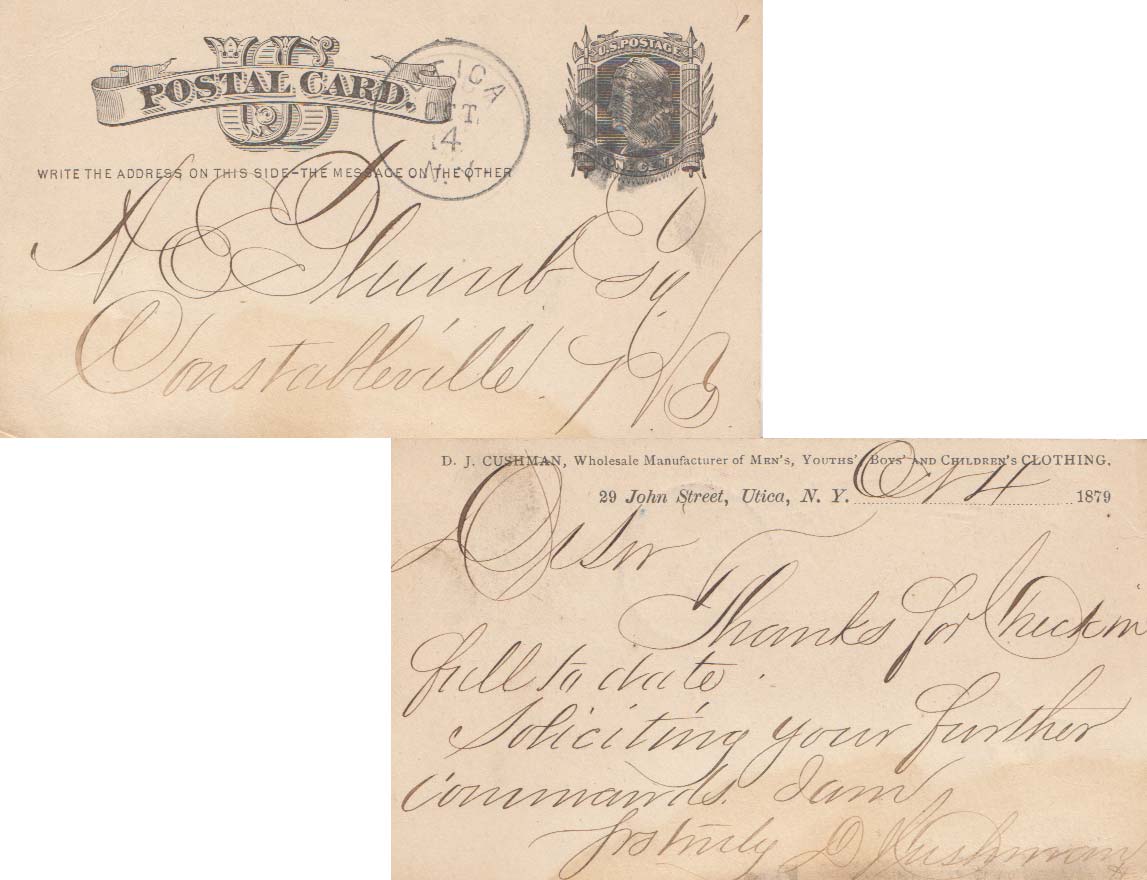 US
POSTAL CARD.
UTICA
OCT
14
N.Y.
U.S. POSTAGE
ONE CENT
WRITE THE ADDRESS ON THIS SIDE–THE MESSAGE ON THE OTHER
N E Plumb Esq
Constableville. NY
D. J. CUSHMAN, Wholesale Manufacturer of Men's, Youths' Boys' and Children's CLOTHING.
29 John Street, Utica, N. Y. Oct 14 1879
D Sir
Thanks for Check in
full to date.
Soliciting your further
commands. I am
Yrs truly D J Cushman